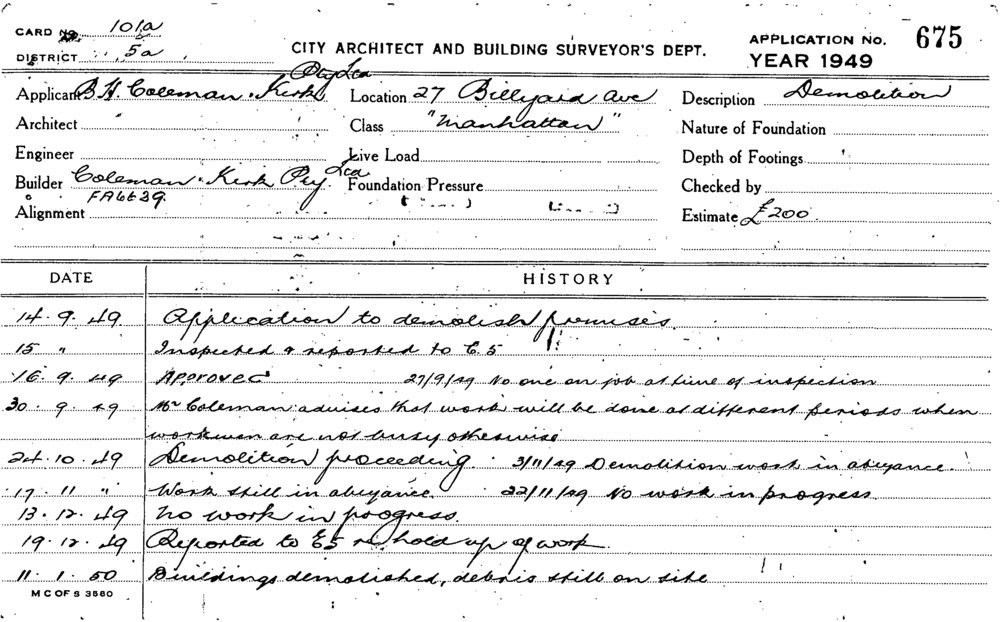 CARD No. 101a
DISTRICT 5a
CITY ARCHITECT AND BUILDING SURVEYOR'S DEPT.
APPLICATION No. 675
YEAR 1949
Pty Ltd
Applicant B H Coleman Kirk
Location 27 Billyard Ave
Description Demolition
Architect
Class "Manhattan"
Nature of Foundation
Engineer
Live Load
Depth of Footings
Builder Coleman Kirk Pty Ltd
Foundation Pressure
Checked by
FA6639
Alignment
Estimate £200
DATE HISTORY
14.9.49 Application to demolish premises.
15 " Inspected & reported to E.5
16.9.49 Approved 27/9/49 No one on job at time of inspection
30.9.49 Mr Coleman advises that work will be done at different periods when
workmen are not busy otherwise
24.10.49 Demolition proceeding. 3/11/49 Demolition work in abeyance.
17.11 " Work still in abeyance. 22/11/49 No work in progress
13.12.49 No work in progress.
19.12.49 Reported to E5 re hold up of work.
11.1.50 Buildings demolished, debris still on site
M C OF S 3580